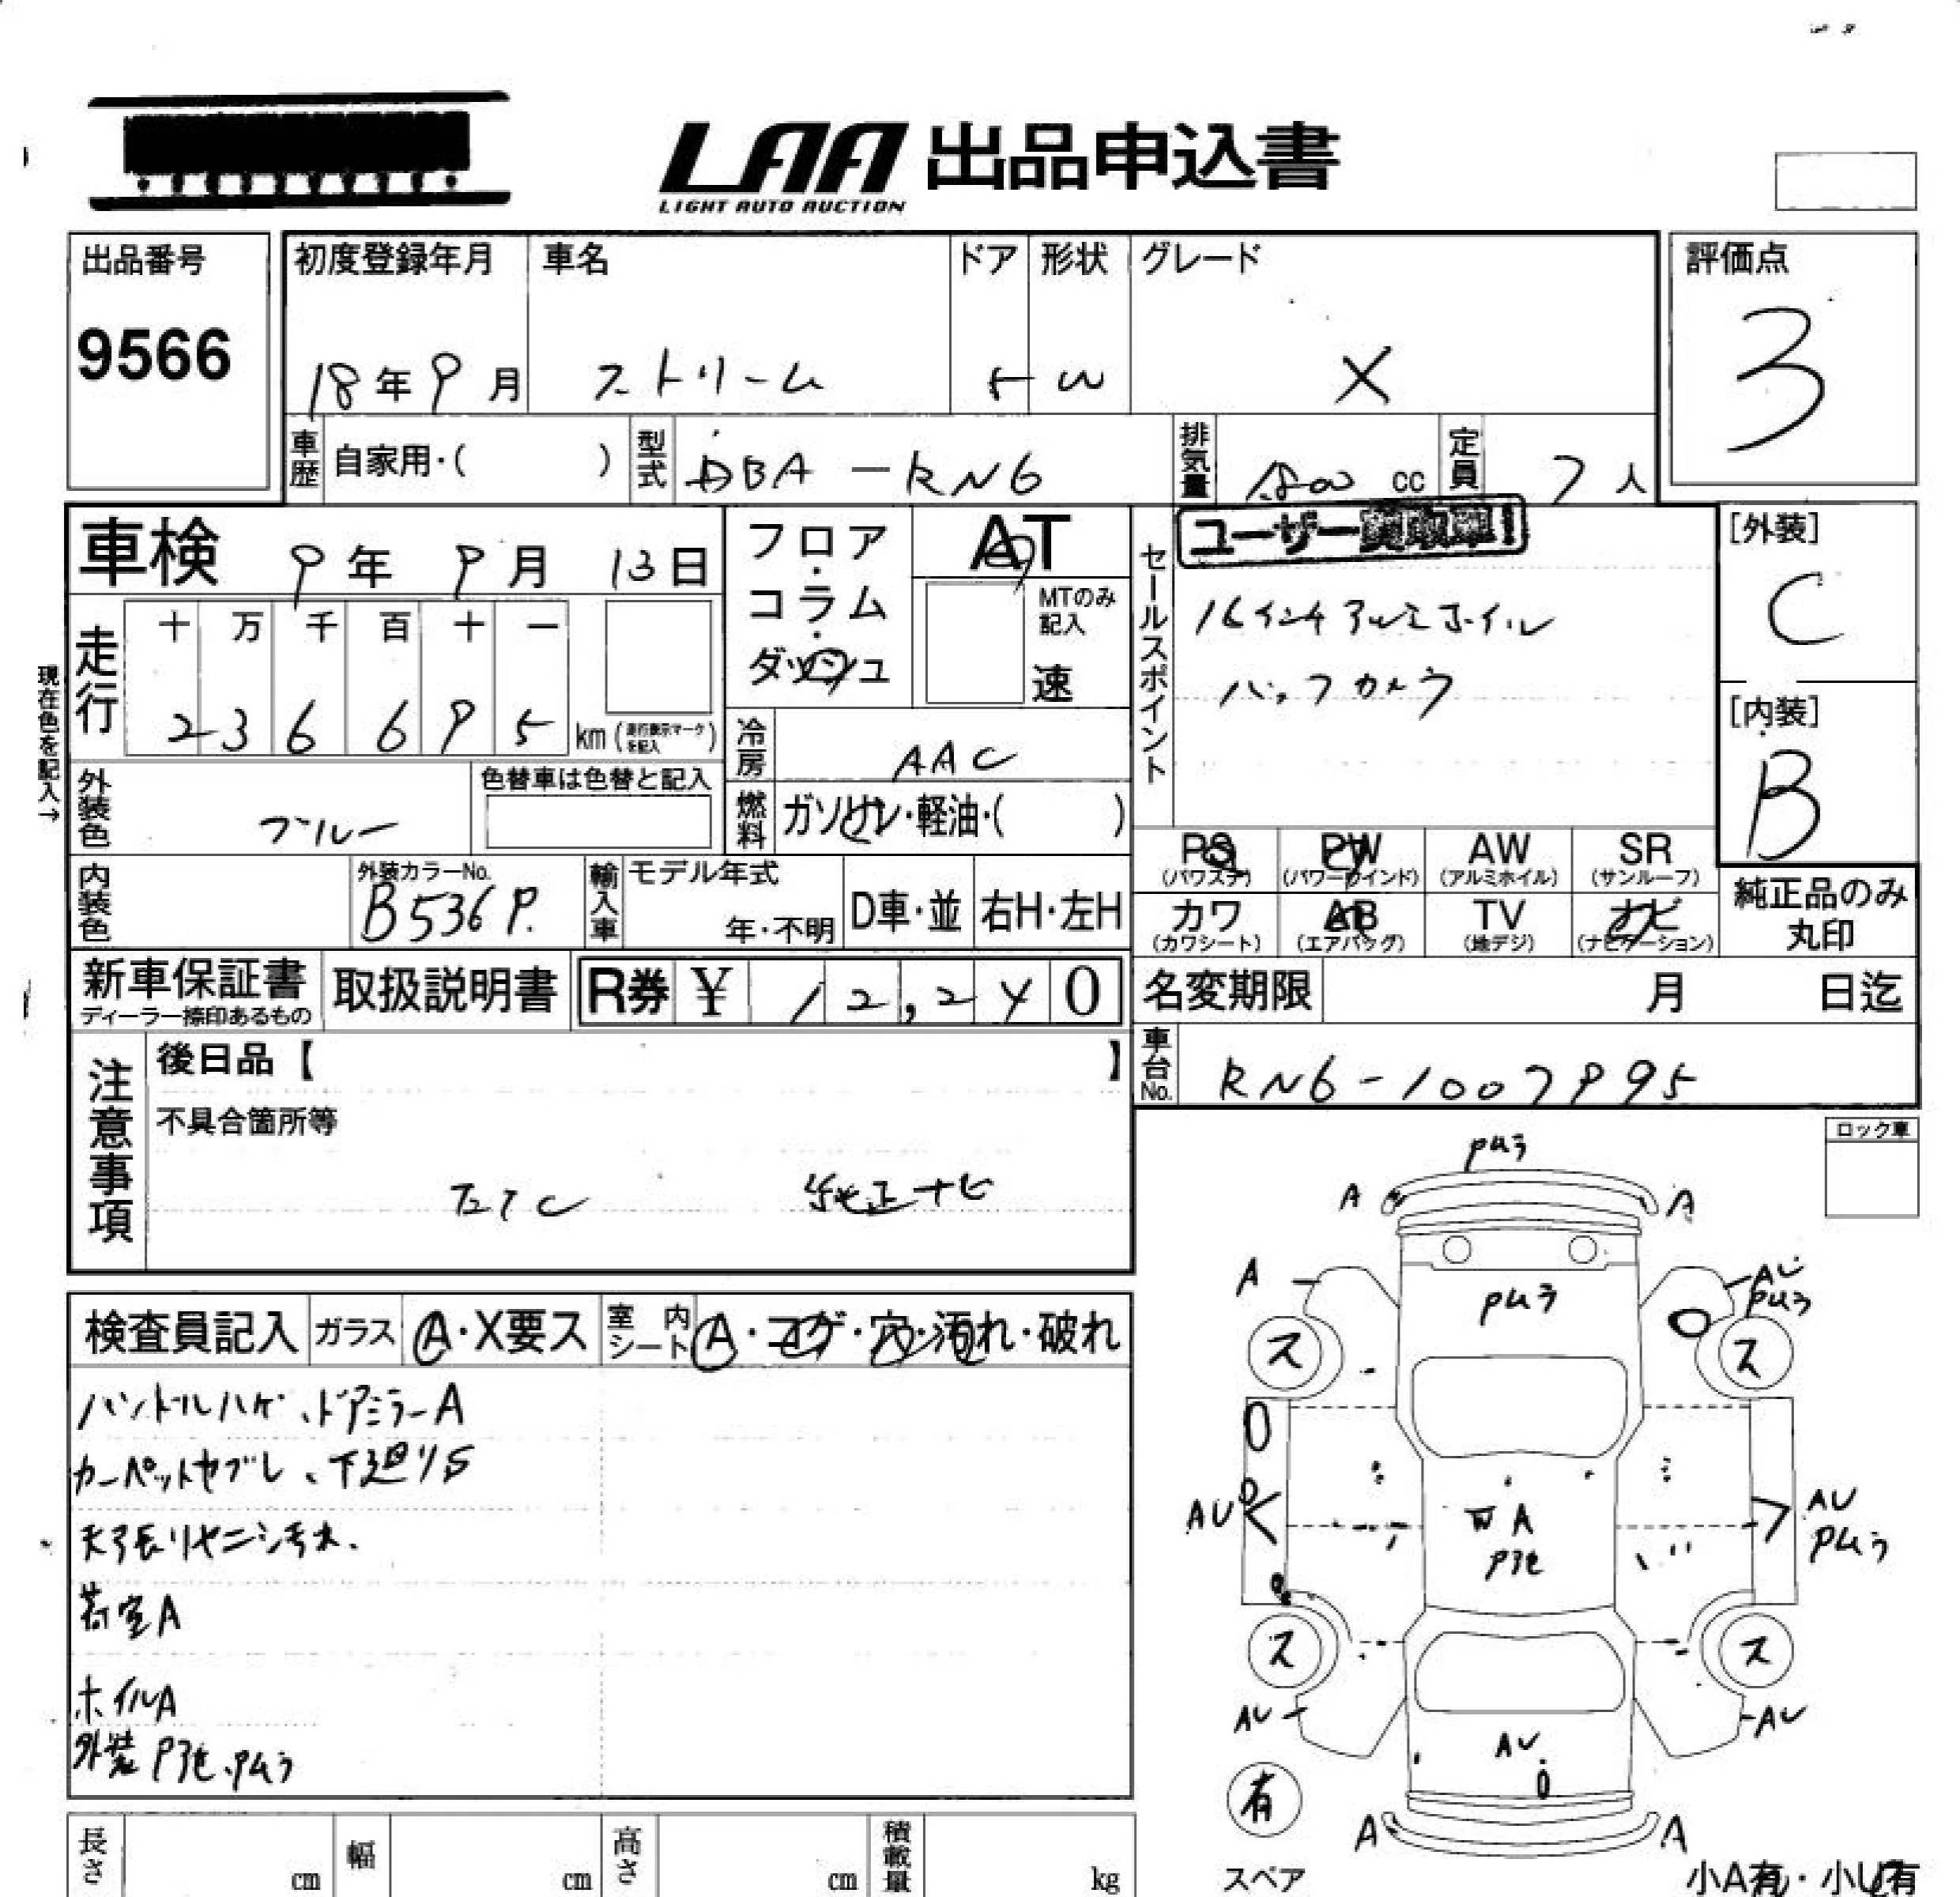 LAA 出品申込書
LIGHT AUTO AUCTION
出品番号
9566
初度登録年月
18年9月
車名
ストリーム
ドア
5
形状
W
グレード
X
評価点
3
車歴
自家用・( )
型式
DBA-RN6
排気量
1800 cc
定員
7人
車検 9年9月13日
フロア・コラム・ダッシュ
AT
MTのみ記入
速
セールスポイント
ユーザー買取車!
16インチアルミホイル
バックカメラ
[外装]
C
[内装]
B
現在色を記入→
走行
十万千百十一
236695 km(走行表示マークを記入)
冷房
AAC
燃料
ガソリン・軽油・( )
外装色
ブルー
色替車は色替と記入
内装色
外装カラーNo.
B536P.
輸入車
モデル年式
年・不明
D車・並
右H・左H
PS
(パワステ)
PW
(パワーウインド)
AW
(アルミホイル)
SR
(サンルーフ)
カワ
(カワシート)
AB
(エアバッグ)
TV
(地デジ)
ナビ
(ナビゲーション)
純正品のみ
丸印
新車保証書
ディーラー捺印あるもの
取扱説明書
R券 ¥ 12,240
名変期限 月 日迄
車台No.
RN6-1007995
注意事項
後日品【 】
不具合箇所等
ETC 純正ナビ
ロック車
検査員記入
ガラス
A・X要ス
室内シート
A・コゲ・穴・汚れ・破れ
ハンドルハゲ、ドアミラーA
カーペットヤブレ、下廻りS
天張リヤニシ汚れ.
荷室A
ホイルA
外装P飛、Pムラ
Pムラ
A A
A AU
Pムラ Pムラ
ス ス
AU AU
A Pムラ
P飛
ス ス
AU AU
AU
有
A A
スペア
小A有・小U有
長さ cm
幅 cm
高さ cm
積載量 kg